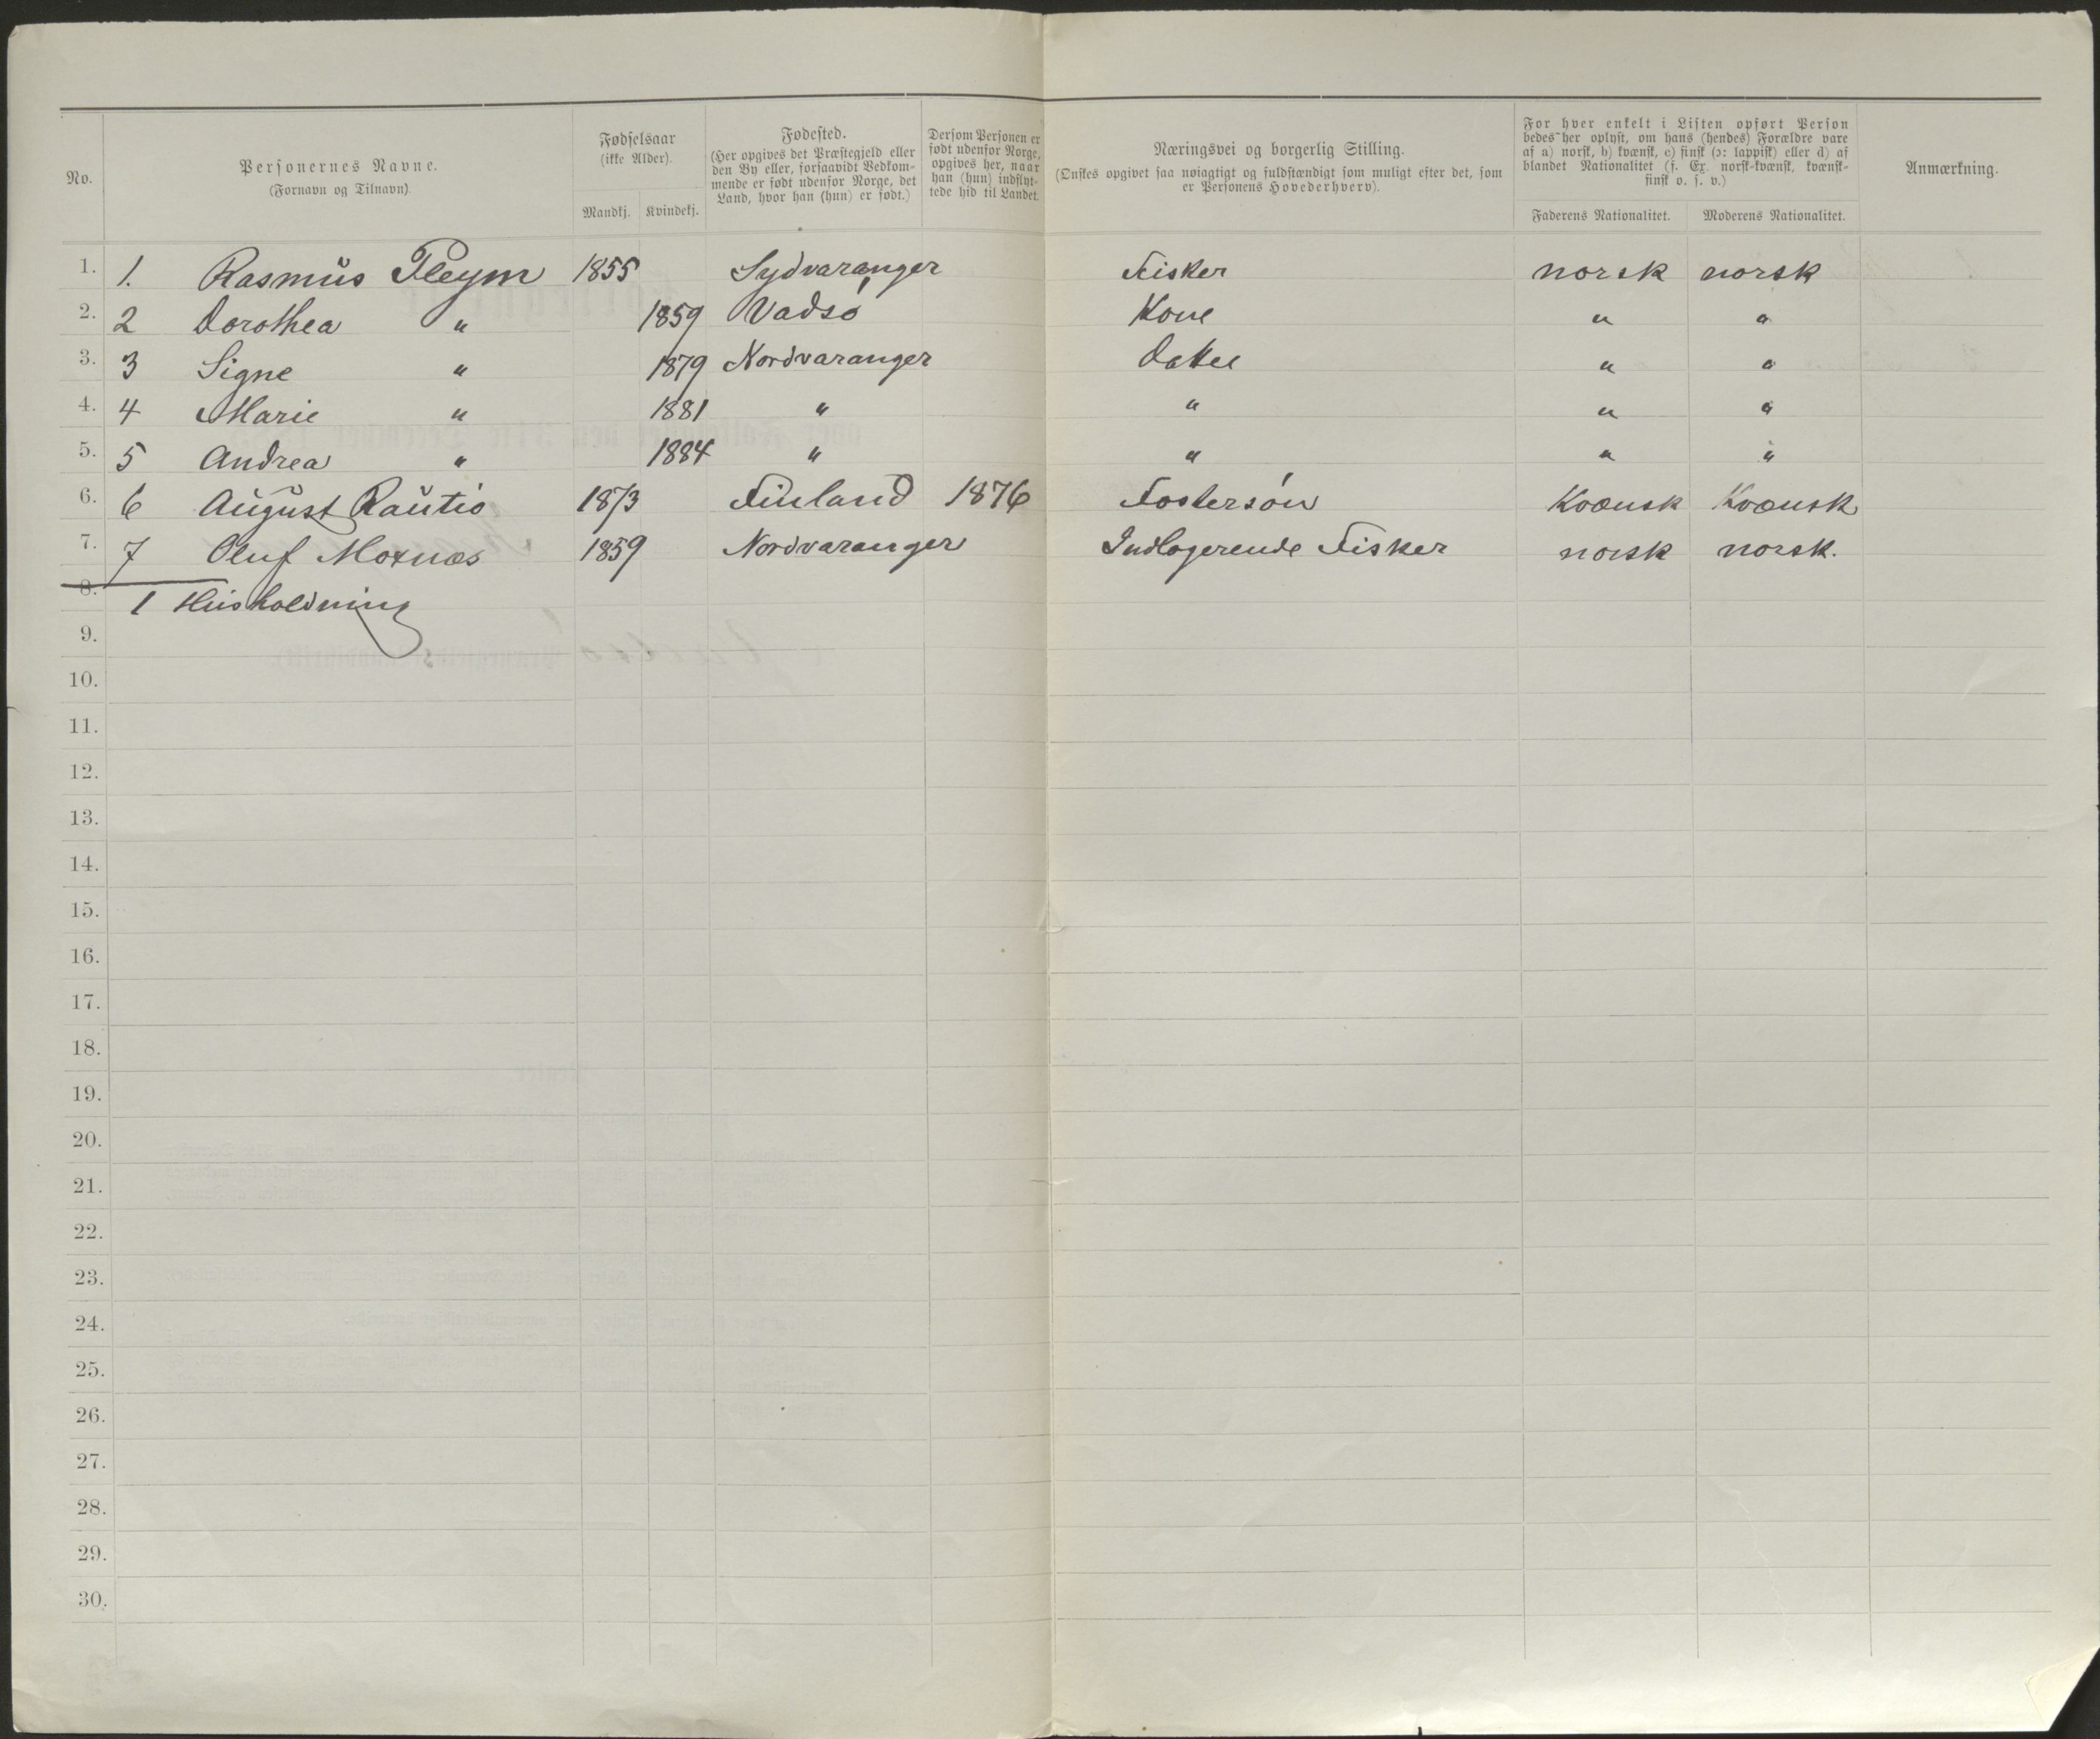 No.
Personernes Navne.
(Fornavn og Tilnavn).
Fødselsaar
(ikke Alder).
Mandkj. Kvindekj.
Fødested.
(Her opgives det Præstegjeld eller
den By eller, forsaavidt Vedkom-
mende er født udenfor Norge, det
Land, hvor han (hun) er født.)
Dersom Personen er
født udenfor Norge,
opgives her, naar
han (hun) indflyt-
tede hid til Landet.
Næringsvei og borgerlig Stilling.
(Ønskes opgivet saa nøiagtigt og fuldstændigt som muligt efter det, som
er Personens Hovederhverv).
For hver enkelt i Listen opført Person
bedes her oplyst, om hans (hendes) Forældre vare
af a) norsk, b) kvænsk, c) finsk (ɔ: lappisk) eller d) af
blandet Nationalitet (f. Ex. norsk-kvænsk, kvænsk-
finsk o. s. v.)
Faderens Nationalitet. Moderens Nationalitet.
Anmærkning.
1. 1. Rasmus Pleym 1855 Sydvaranger Fisker norsk norsk
2. 2 Dorothea " 1859 Vadsö Kone " "
3. 3 Signe " 1879 Nordvaranger Datter " "
4. 4 Marie " 1881 " " " "
5. 5 Andrea " 1884 " " " "
6. 6 August Rautio 1873 Finland 1876 Fostersön Kvænsk Kvænsk
7. 7 Oluf Moxnæs 1859 Nordvaranger Indlogerende Fisker norsk norsk.
8. 1 Husholdning
9.
10.
11.
12.
13.
14.
15.
16.
17.
18.
19.
20.
21.
22.
23.
24.
25.
26.
27.
28.
29.
30.